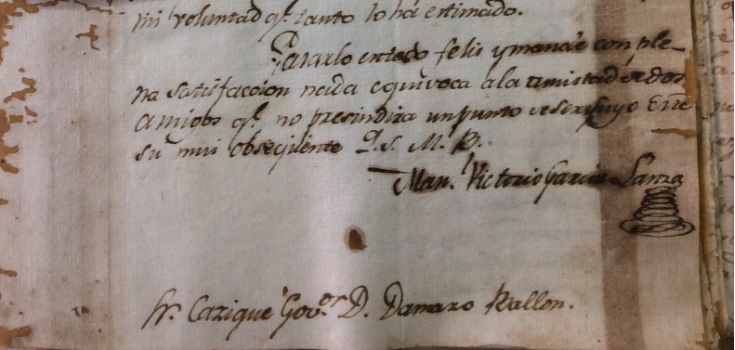 mi voluntad q.e tanto lo há estimado.
Páselo entado felis y mande con ple-
na satisfaccion nada equivoca a la amistad de dos
amigos q.e no presindira un punto
su mui obseqüente Q. S. M. B.
Man.l Victorio Garcia Lanza
Sr. Cazique Gov.or D. Damazo Rallon.